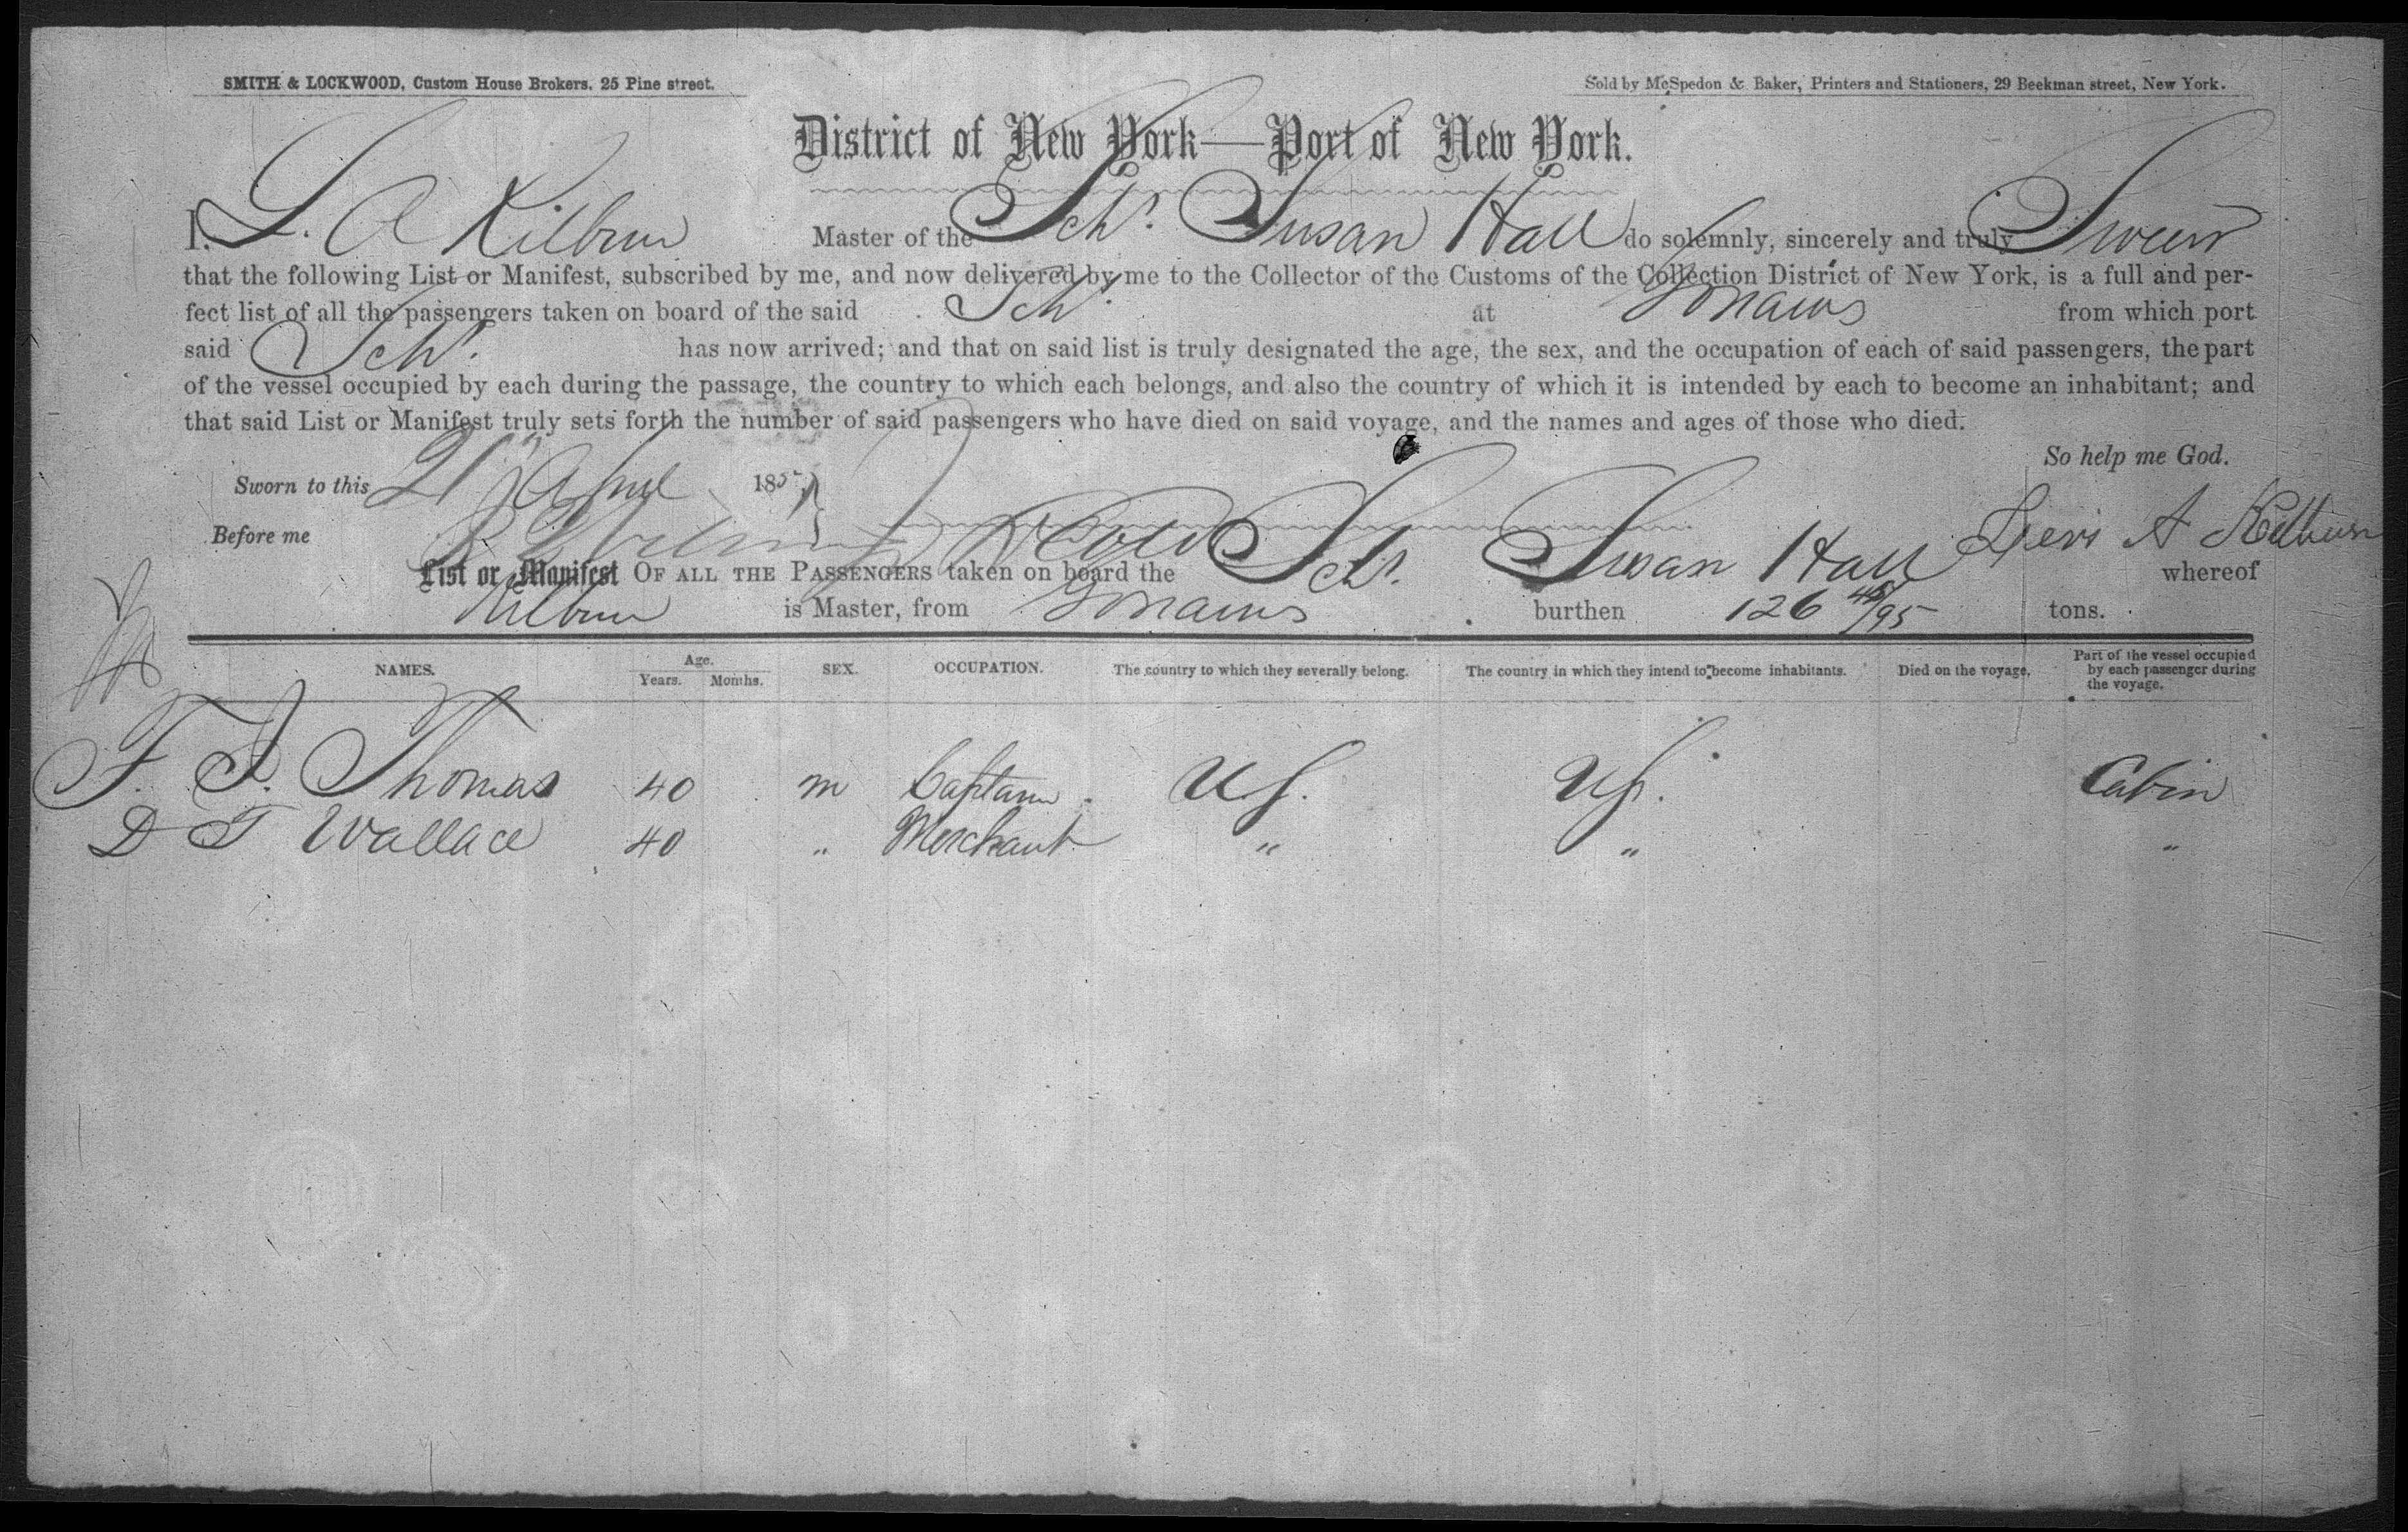 SMITH & LOCKWOOD, Custom House Brokers, 25 Pine street.
Sold by McSpedon & Baker, Printers and Stationers, 29 Beekman street, New York.
District of New York—Port of New York.
I, L. A Kilburn Master of the Schr. Susan Hall do solemnly, sincerely and truly Swear
that the following List or Manifest, subscribed by me, and now delivered by me to the Collector of the Customs of the Collection District of New York, is a full and per-
fect list of all the passengers taken on board of the said Schr at Gonaives from which port
said Schr. has now arrived; and that on said list is truly designated the age, the sex, and the occupation of each of said passengers, the part
of the vessel occupied by each during the passage, the country to which each belongs, and also the country of which it is intended by each to become an inhabitant; and
that said List or Manifest truly sets forth the number of said passengers who have died on said voyage, and the names and ages of those who died.
So help me God.
Sworn to this 21 April 185
Before me
Levi A Kilburn
List or Manifest OF ALL THE PASSENGERS taken on board the Schr. Susan Hall whereof
Kilburn is Master, from Gonaives burthen 126 /95 tons.
NAMES. Age. Years. Months. SEX. OCCUPATION. The country to which they severally belong. The country in which they intend to become inhabitants. Died on the voyage. Part of the vessel occupied by each passenger during the voyage.
F. Thomas 40 m Captain U.S. U.S. Cabin
D T Wallace 40 " Merchant " " "